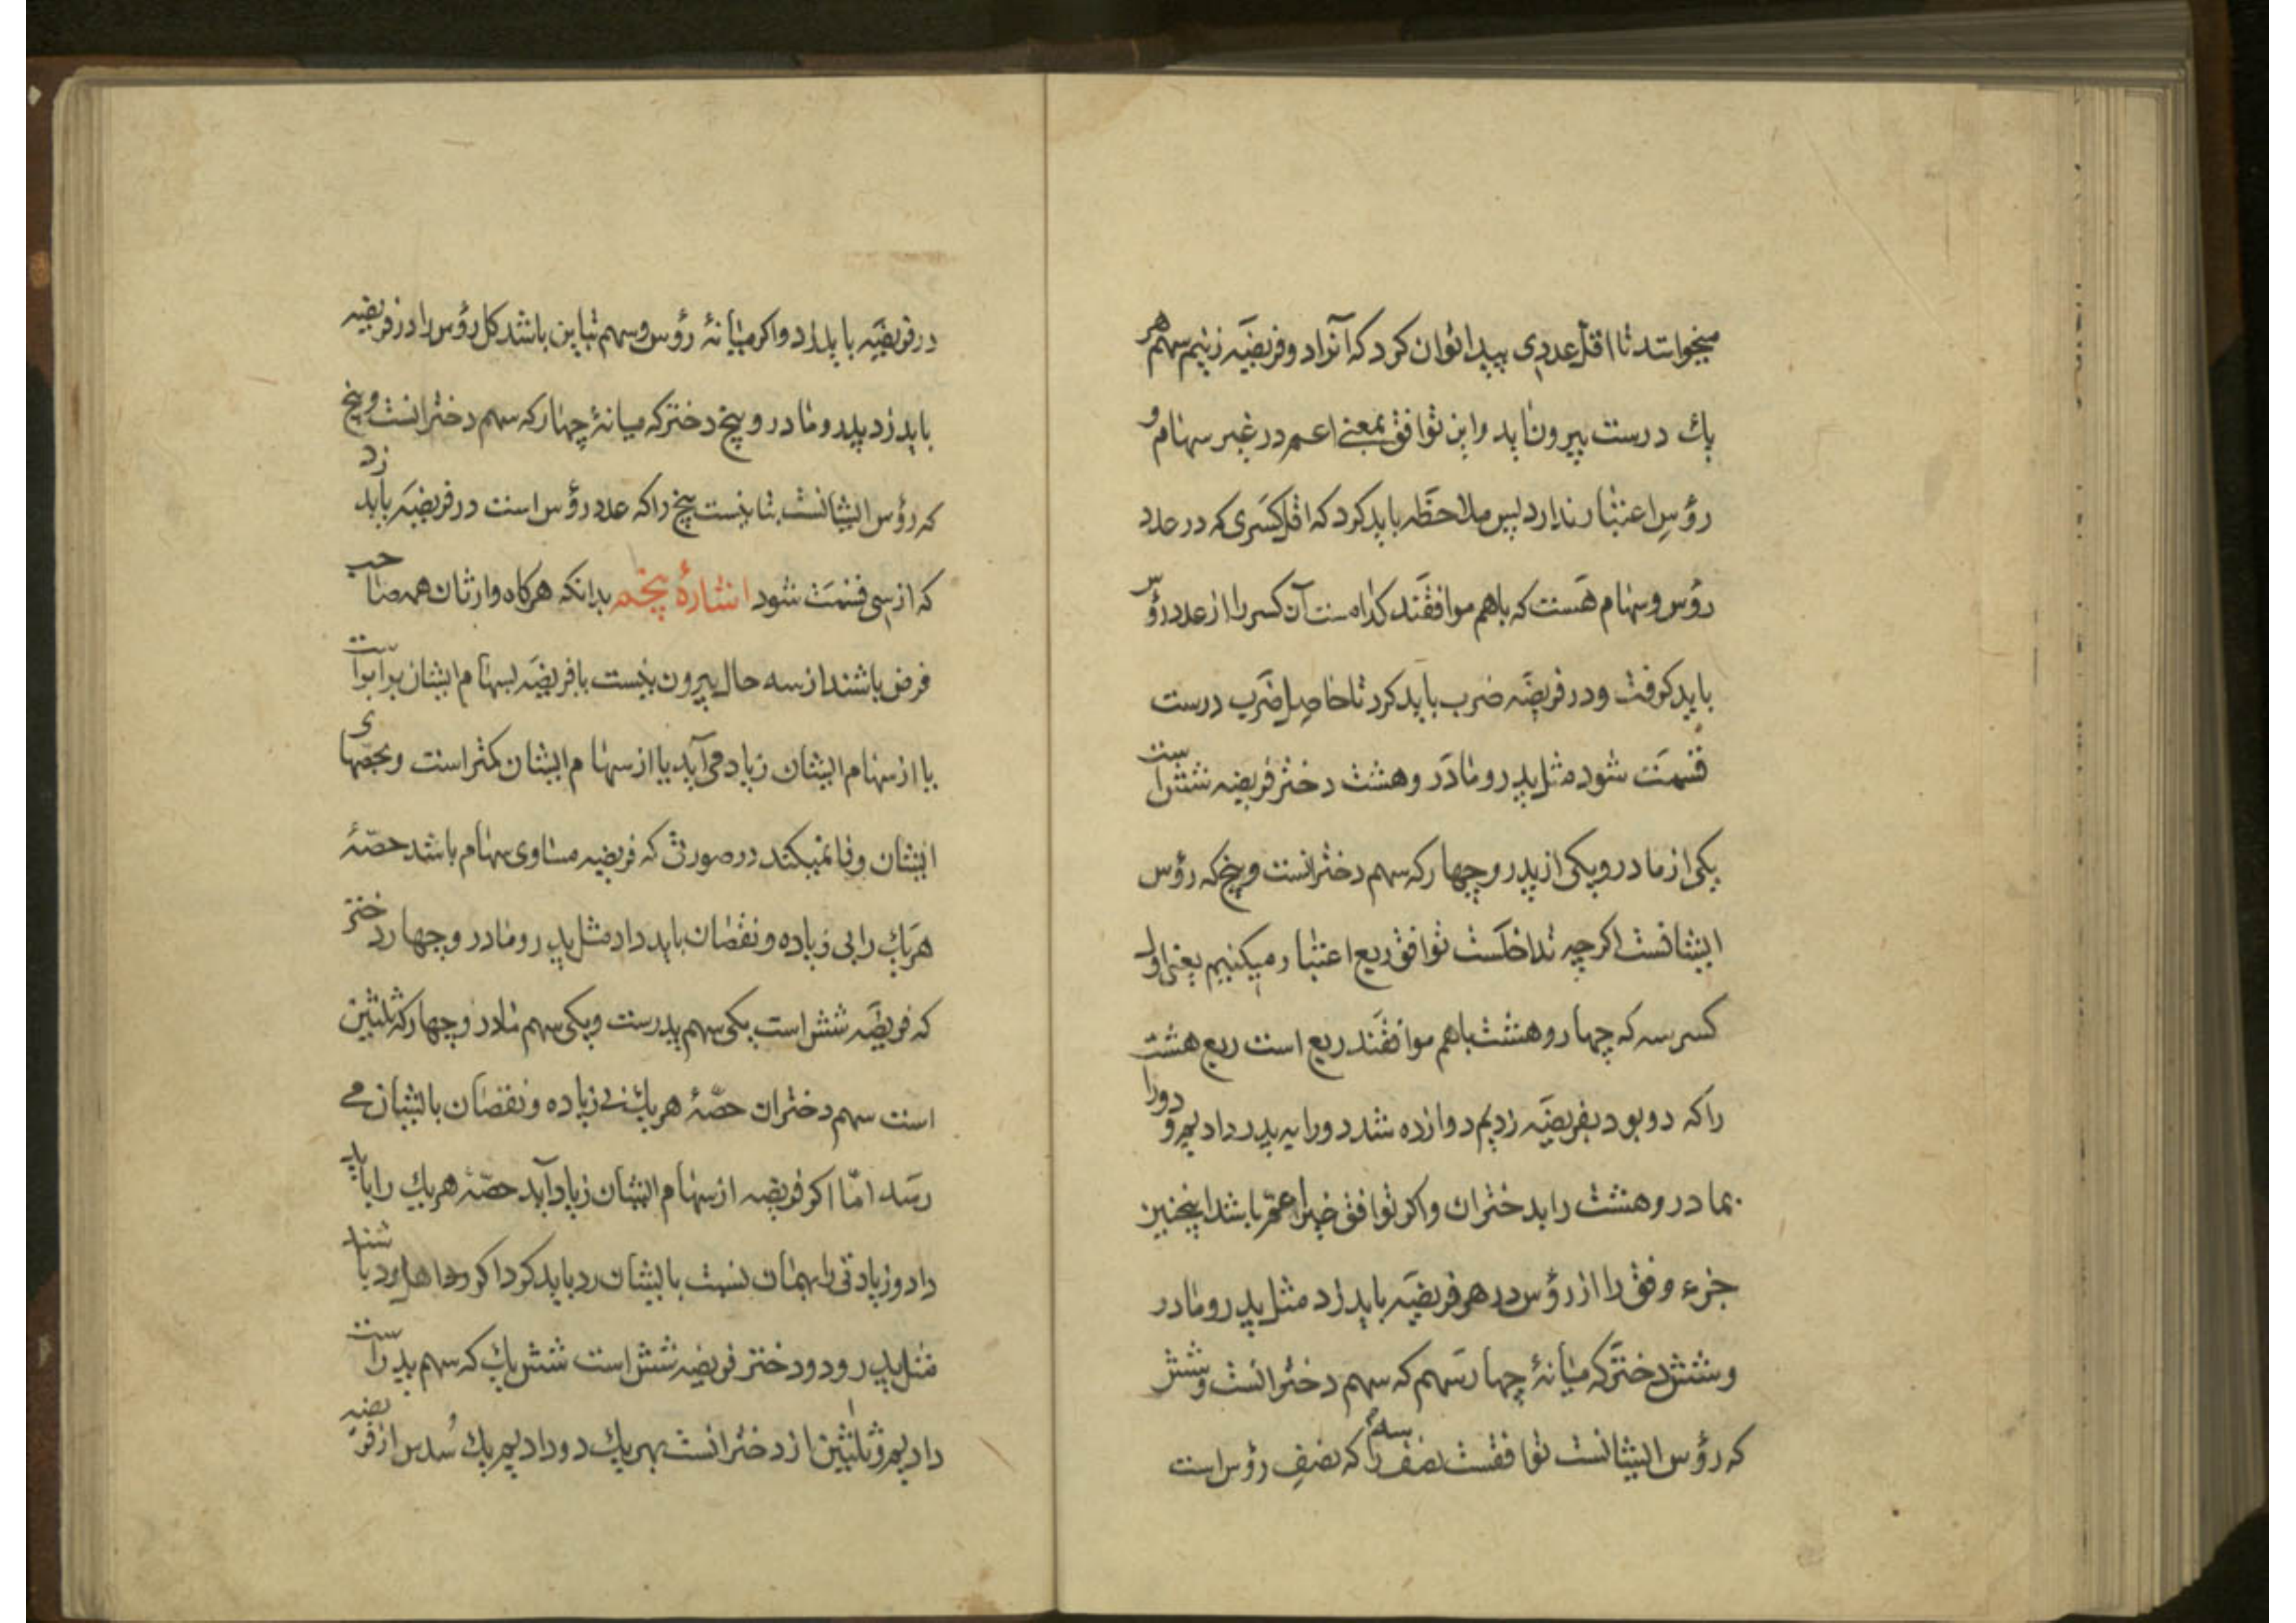 میخواستند تا اقل عددی پیدا توان کرد که آنرا در فریضَه زنیم سهم هر
یك درست بیرون اید و این توافق بمعنی اعم در غیر سهام و
رؤسِ اعتبار ندارد پس ملاحظَه باید کرد که اقل کَسری که در عدد
رؤس و سهام هَست که با هم موافقَند کدام ست آن کسر را از عدد رؤس
باید کرفت و در فریضَه ضرب باید کرد تا حاصِل ضَرب درست
قسمَت شود مثل پدر و مادَر و هشت دختر فریضه شش است
یکی از مادر و یکی از پدر و چهار که سهم دخترانست و پنج که رؤس
ایشانست اکرچه تداخلَست توافق ربع اعتبار میکنیم یعنی اول
کسر سه که چهار و هشت با هم موافقَند ربع است ربع هشت
را که دو بود بفریضَه زدیم دوازده شد دو را به پدر دادیم و دو را
بمادر و هشت را بدختران و اکر توافق خیر اعم باشد اینچنین
جزء وفق را از رؤس در هر فریضَه باید زد مثل پدر و مادر
و شش دختر که میانهٔ چهار سَهم که سهم دخترانست و شش
که رؤس ایشانست توافقست نصف سه را که نصفِ رؤس است
در فریضَه باید زد و اکر میانهٔ رؤس و سهم تباین باشد کل رؤس را در فریضه
باید زد پدر و مادر و پنج دختر که میانهٔ چهار که سهم دخترانست و پنج
که رؤس ایشانست تباینست پنج را که عدد رؤس است در فریضَه باید زد
که از سی قسمَت شود اشارهٔ پنجم بدانکه هرکاه وارثان همه صاحب
فرض باشند از سه حال بیرون نیست یا فریضَه بسهام ایشان برابر است
یا از سهام ایشان زیاد می آید یا از سهام ایشان کمتر است و بحصهای
ایشان وفا نمیکند در صورتی که فریضه مساوی سهام باشد حصّهٔ
هَریك را بی زیاده و نقصان باید داد مثل پدر و مادر و چهار دختر
که فریضَه شش است یکی سهم پدرست و یکی سهم مادر و چهار که ثلثین
است سهم دختران حصّهٔ هریك بی زیاده و نقصان بایشان می
رسَد امّا اکر فریضه از سهام ایشان زیاد آید حصّهٔ هریك را باید
داد و زیادتی را بهمان نسبت بایشان رد باید کرد اکر اهل رد باشند
مثل پدر و دو دختر فریضه شش است شش یك که سهم پدر است
دادیم و ثلثین از دخترانست بهریك دو دادیم یك سُدس از فریضه